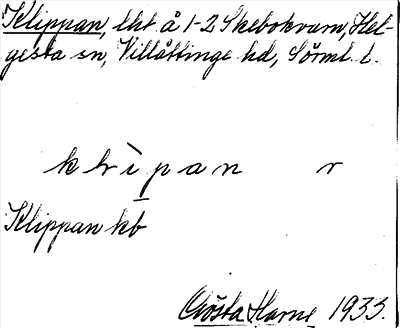 Klippan, lht å 1-2 Skebokvarn, Hel-
gesta sn, Villåttinge hd, Sörml. l.
klìpan r
Klippan kb
Gösta Harne 1933.